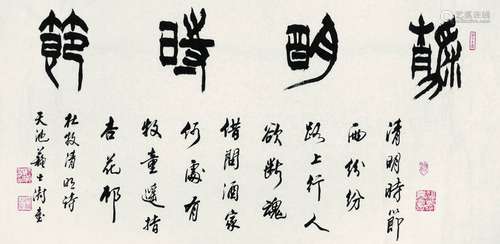 清明時節
清明時節
雨紛紛
路上行人
欲斷魂
借問酒家
何處有
牧童遥指
杏花邨
杜牧清明詩
天池蘇士澍書